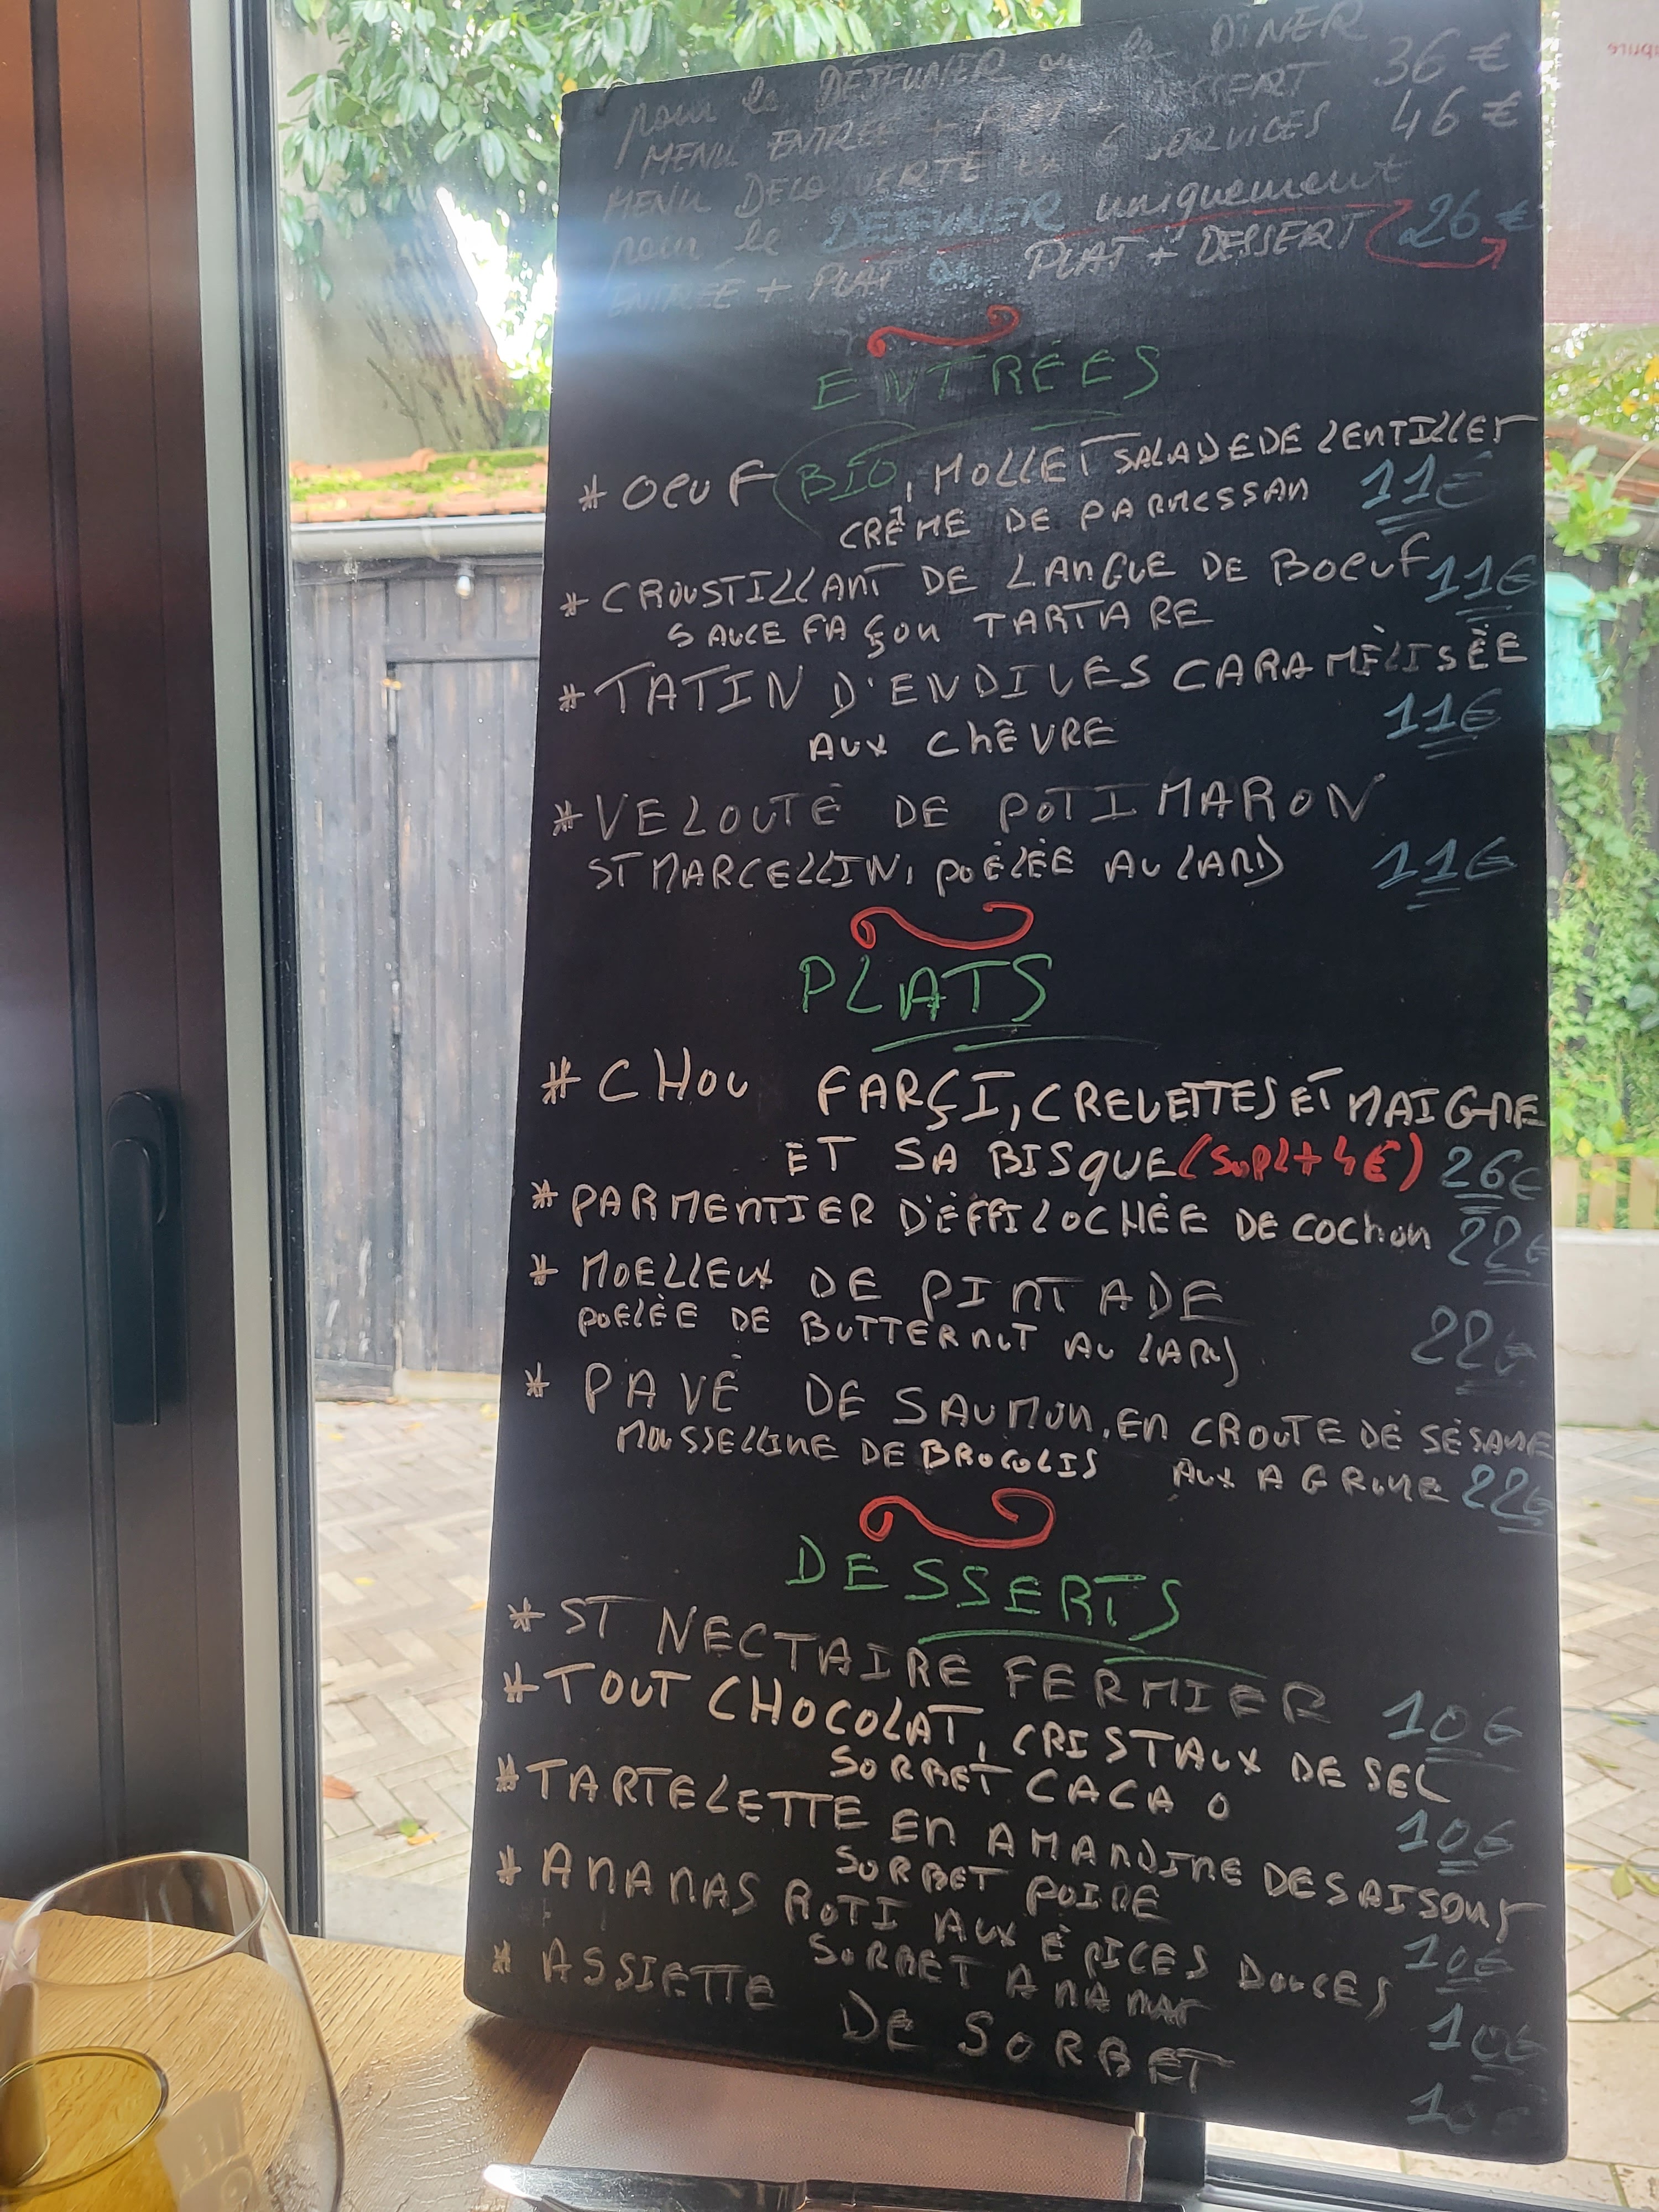 pour le DÉJEUNER ou le DÎNER
MENU ENTRÉE + PLAT + DESSERT 36 €
MENU DÉCOUVERTE EN 6 SERVICES 46 €
pour le DÉJEUNER uniquement
ENTRÉE + PLAT ou PLAT + DESSERT 26 €
ENTRÉES
* OEUF BIO, MOLLET SALADE DE LENTILLES
CRÈME DE PARMESSAN 11€
* CROUSTILLANT DE LANGUE DE BOEUF 11€
SAUCE FAÇON TARTARE
* TATIN D'ENDIVES CARAMÈLISÉE
AUX CHÊVRE 11€
* VELOUTÉ DE POTIMARON
ST MARCELLIN, POÈLÉE AU LARD 11€
PLATS
* CHOU FARÇI, CREVETTES ET MAIGRE
ET SA BISQUE (SUPL+4€) 26€
* PARMENTIER D'ÉFFILOCHÉE DE COCHON 22€
* MOELLEUX DE PINTADE
POELÉE DE BUTTERNUT AU LARD 22€
* PAVÉ DE SAUMON, EN CROUTE DE SÉSAME
MOUSSELLINE DE BROCOLIS AUX AGRUME 22€
DESSERTS
* ST NECTAIRE FERMIER 10€
* TOUT CHOCOLAT, CRISTAUX DE SEL
SORBET CACAO 10€
* TARTELETTE EN AMANDINE DE SAISONS
SORBET POIRE 10€
* ANANAS ROTI AUX ÉPICES DOUCES
SORBET ANANAS 10€
* ASSIETTE DE SORBET 10€